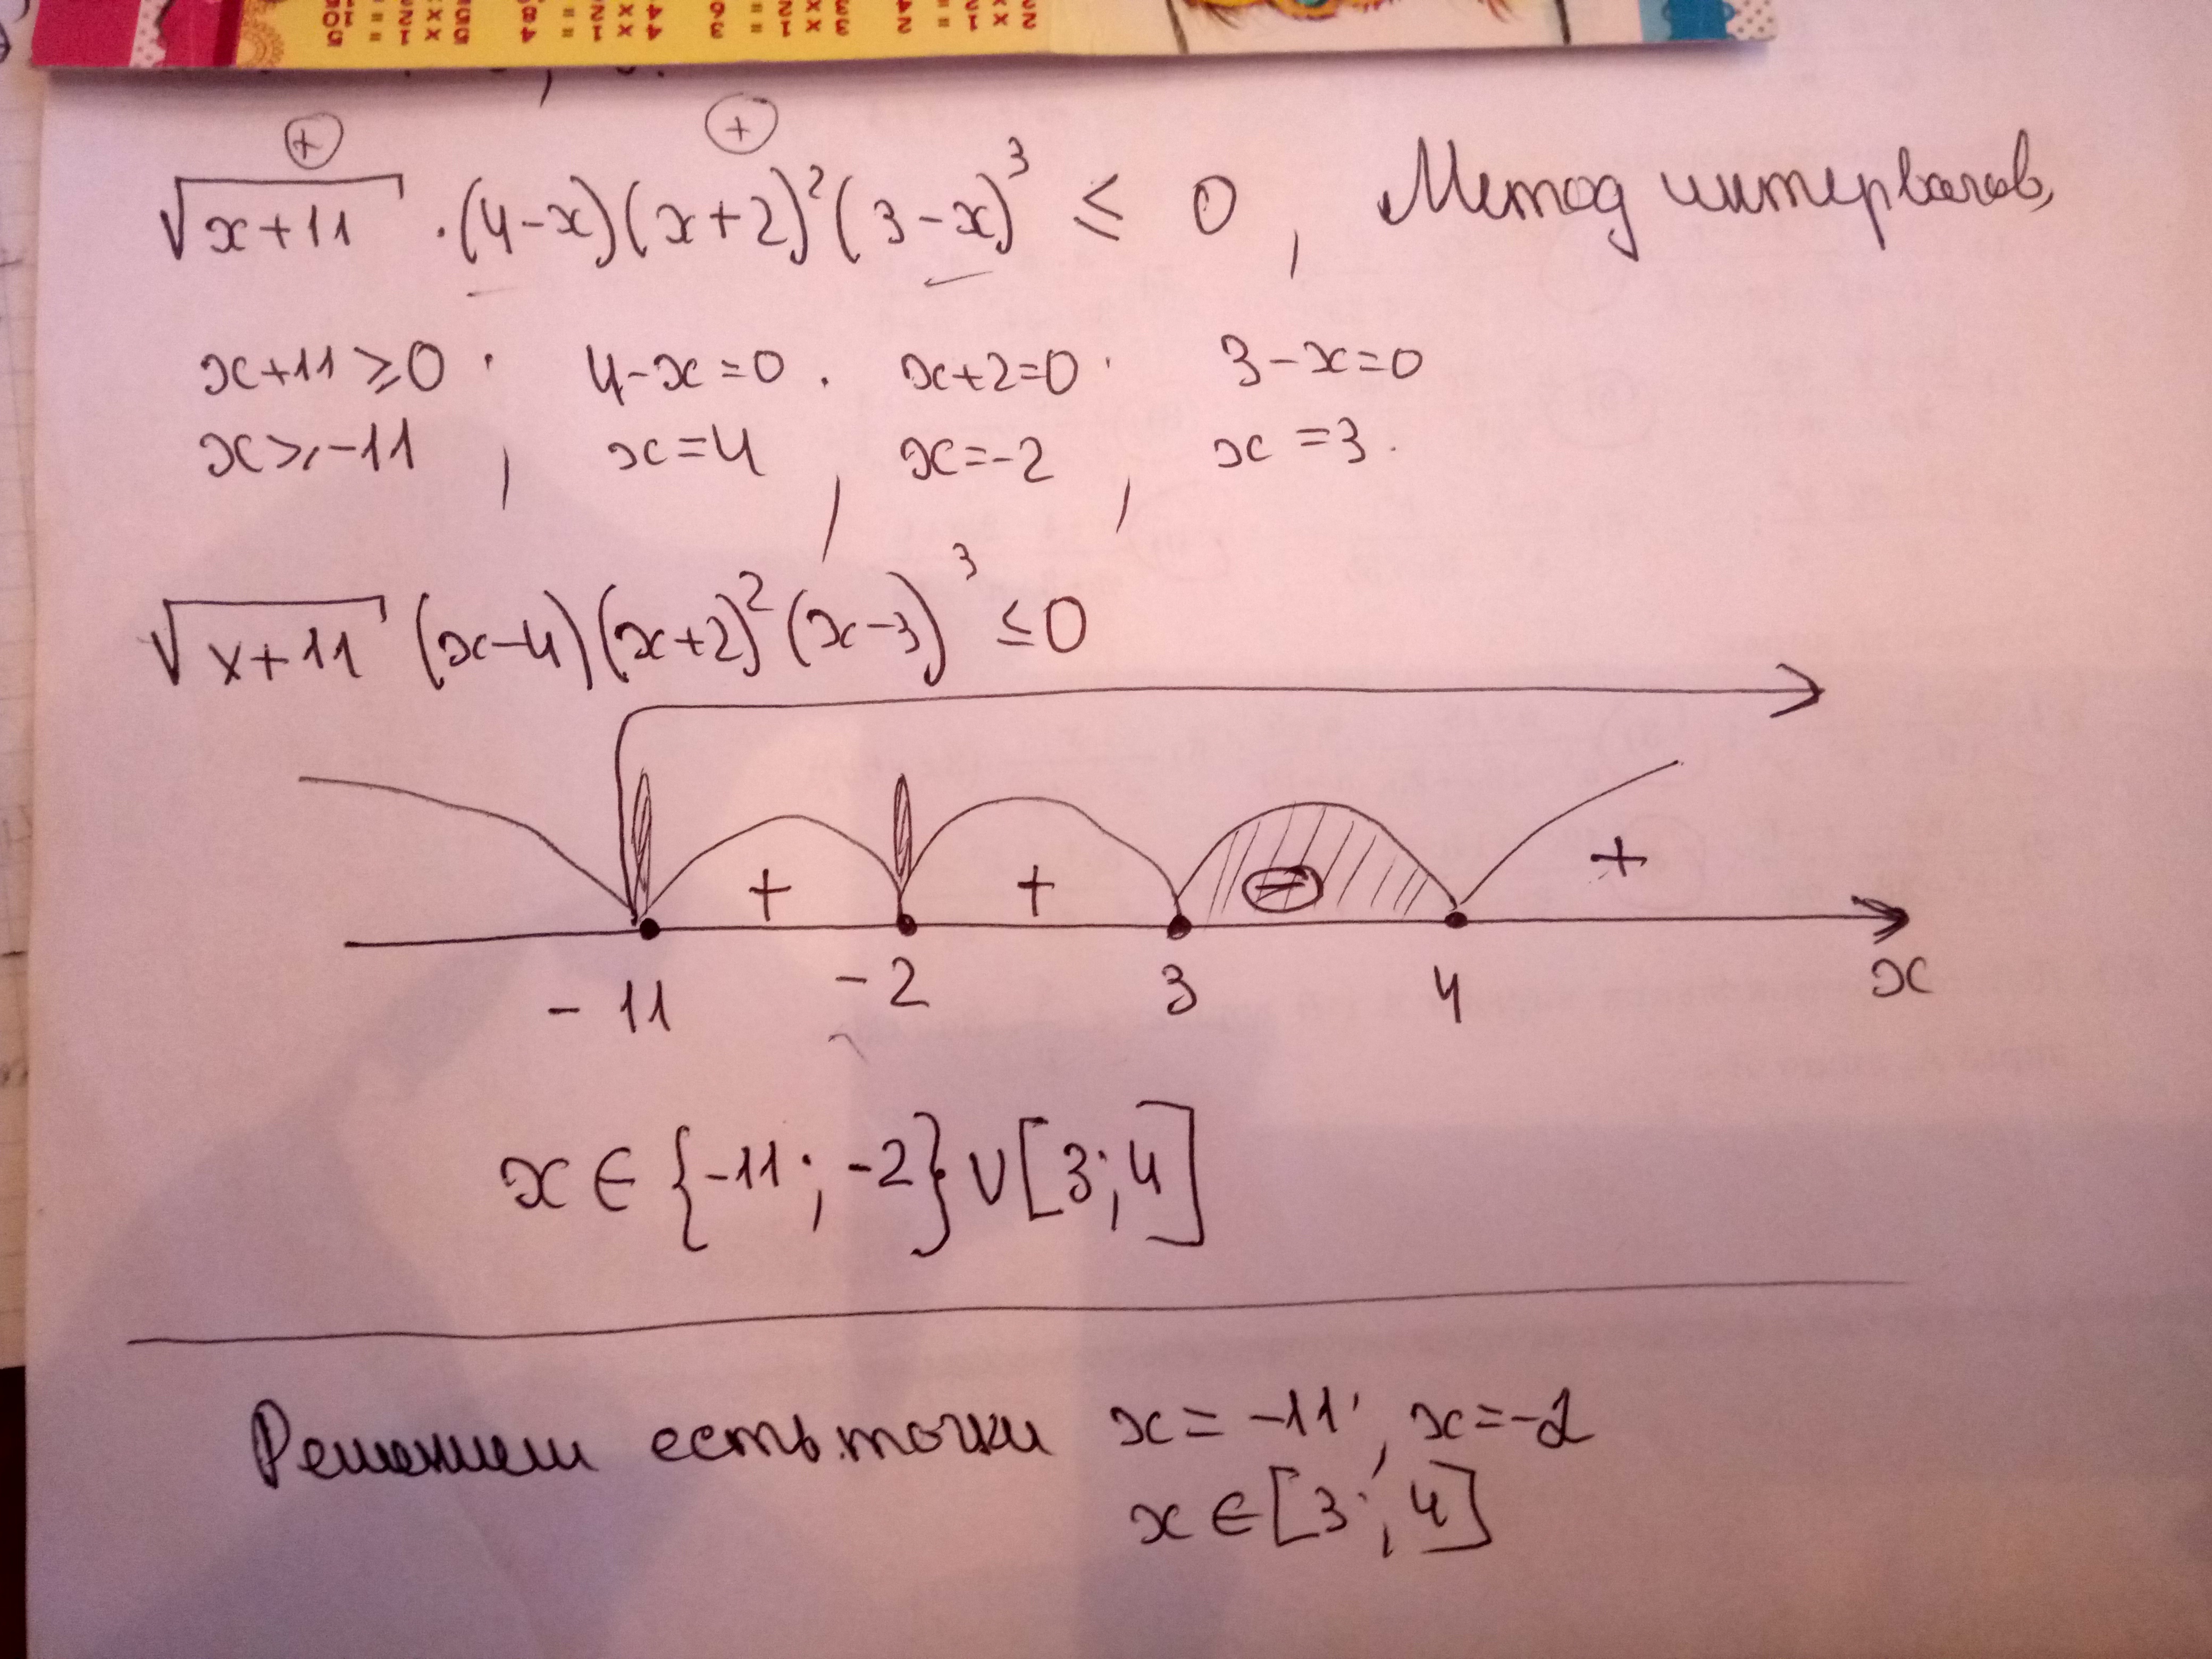 ⊕ ⊕
√(x+11) · (4-x)(x+2)²(3-x)³ ≤ 0, Метод интервалов,
x+11 ≥ 0 4-x=0 x+2=0 3-x=0
x ≥ -11, x=4, x=-2, x=3.
√(x+11) (x-4)(x+2)²(x-3)³ ≤ 0
+ + - +
-11 -2 3 4 x
x ∈ {-11; -2} ∪ [3; 4]
Решением есть точки x = -11; x = -2
x ∈ [3; 4]